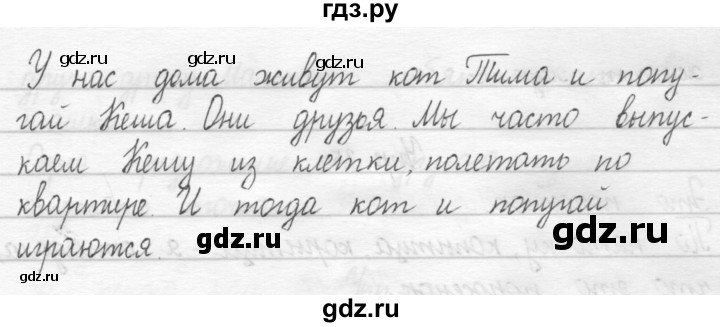 гдз.ру
gdz.ru gdz.ru
У нас дома живут кот Тима и попу-
гай Кеша. Они друзья. Мы часто выпус-
каем Кешу из клетки, полетать по
квартире. И тогда кот и попугай
играются.
gdz.ru gdz.ru
gdz.ru
gdz.ru